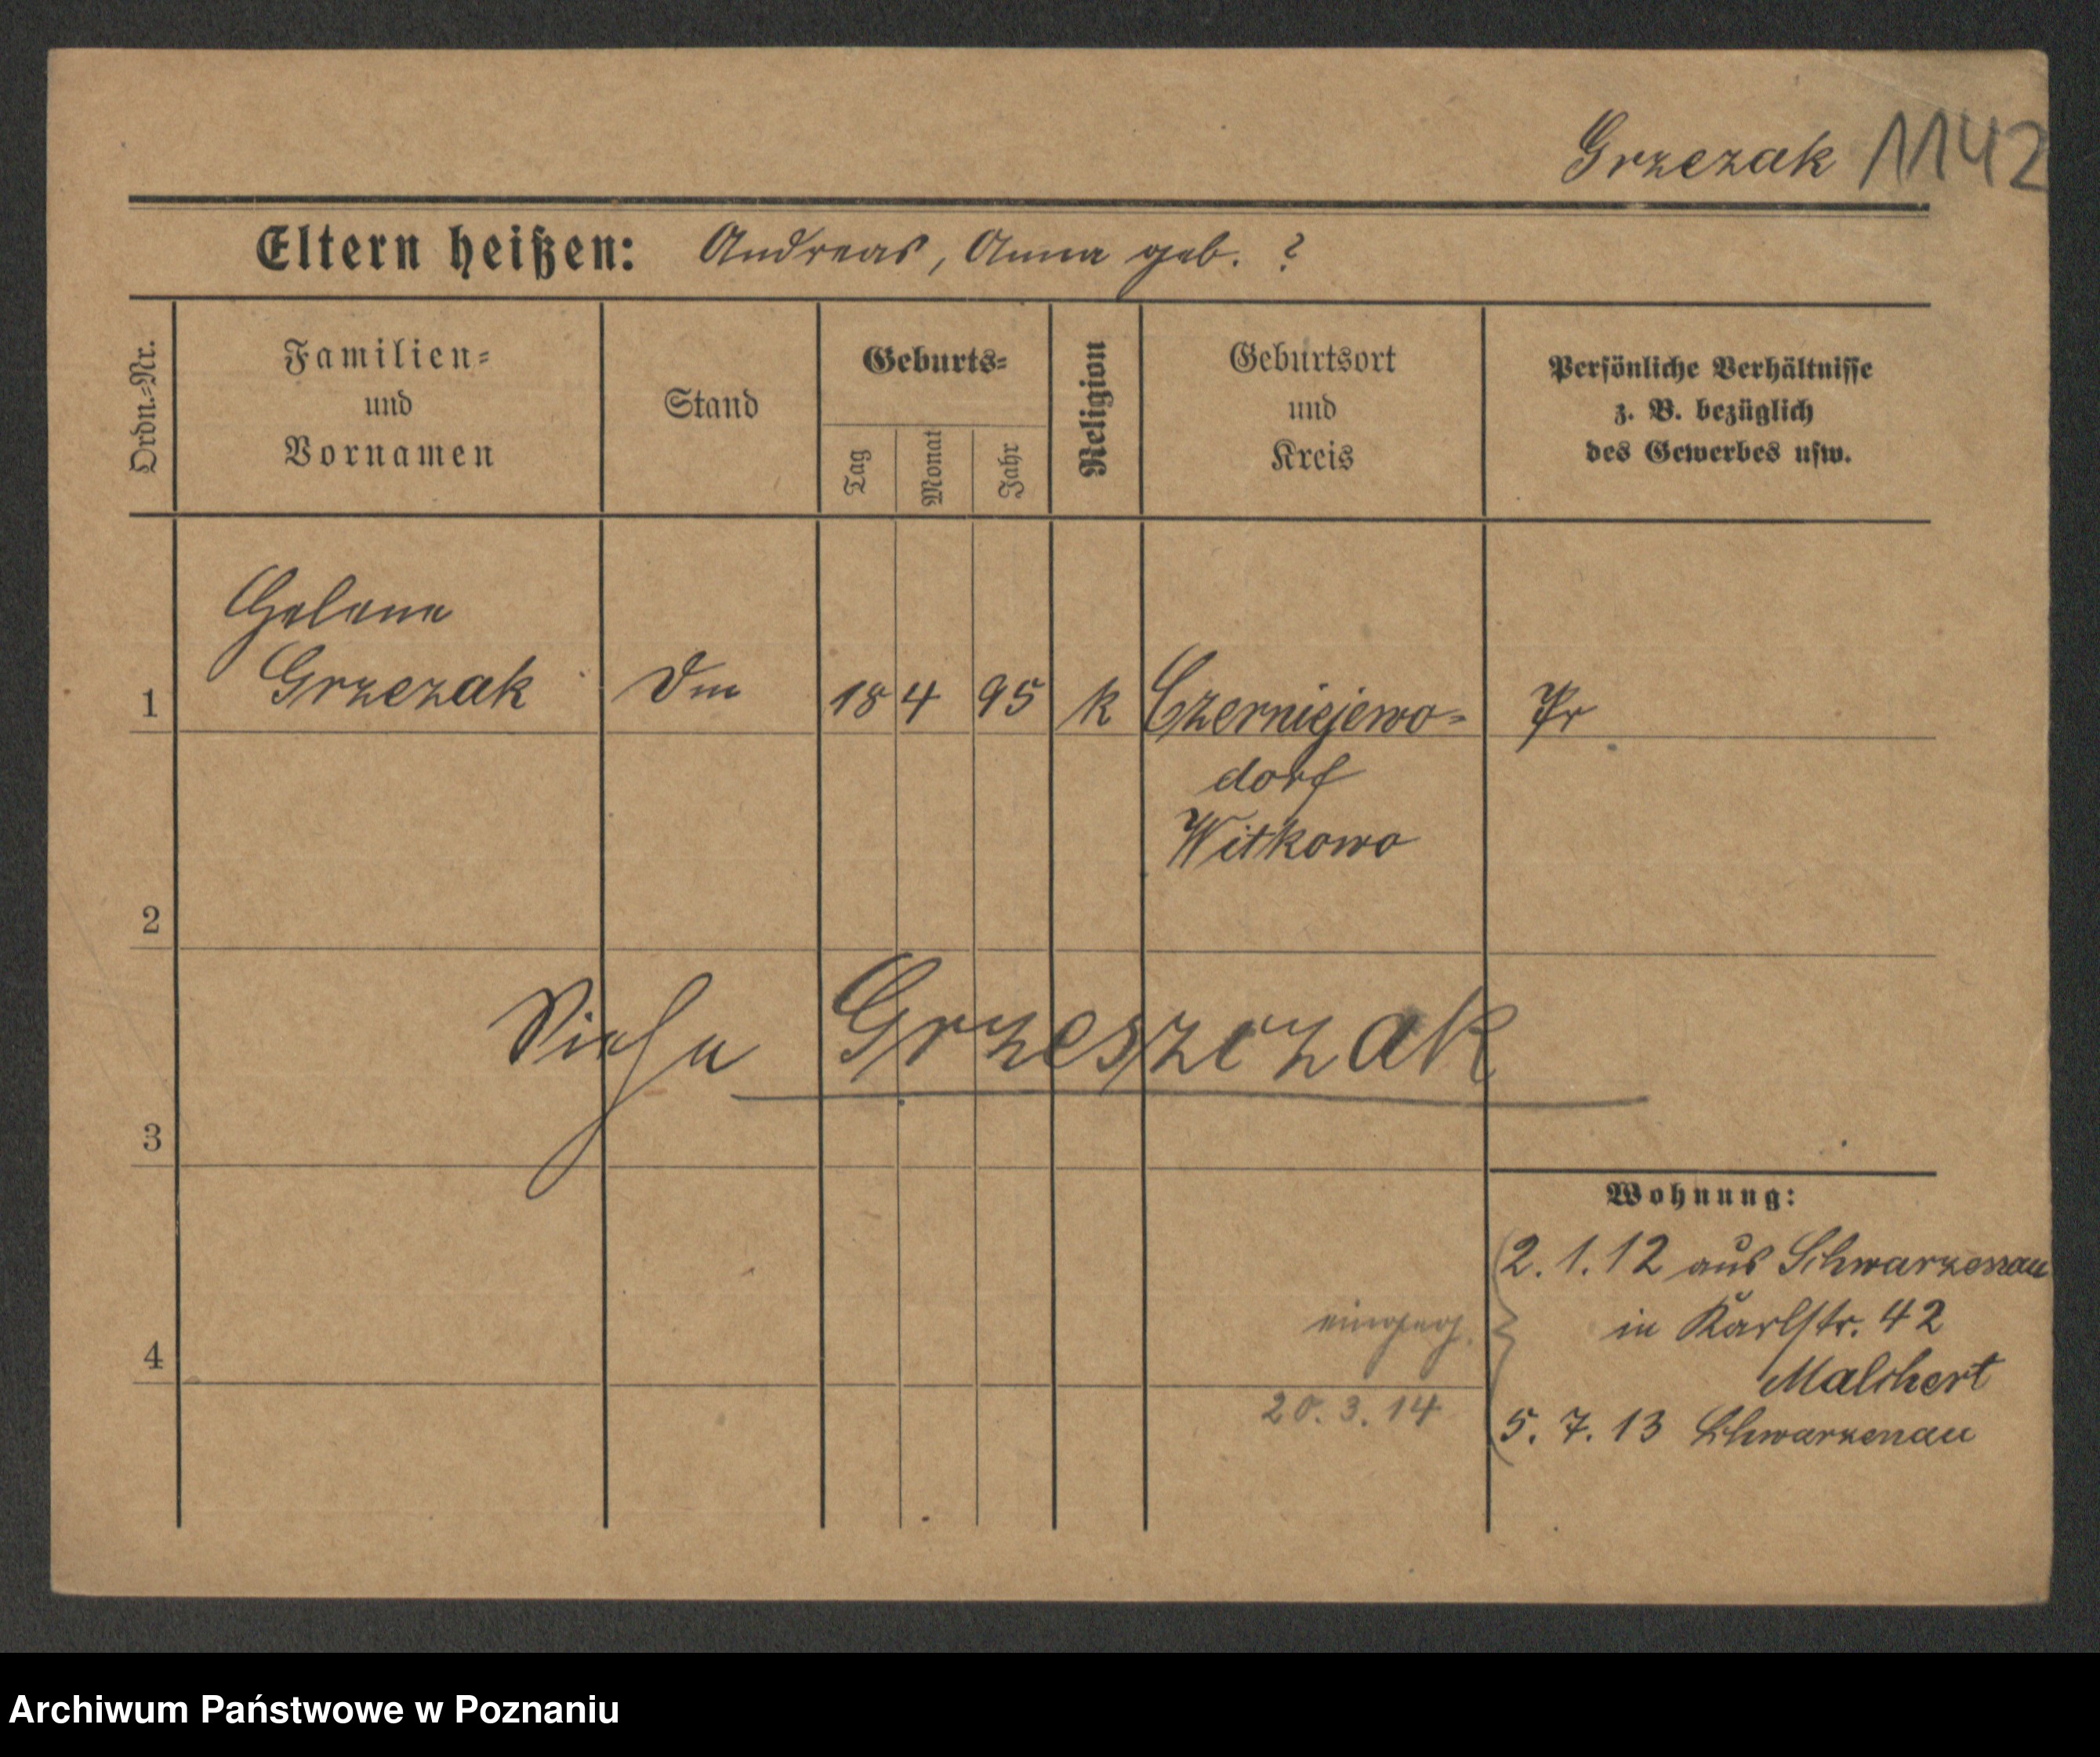 Grzezak 1142
Eltern heißen: Andreas, Anna geb. ?
Ordn.-Nr.
Familien-
und
Vornamen
Stand
Geburts-
Tag
Monat
Jahr
Religion
Geburtsort
und
Kreis
Persönliche Verhältnisse
z. B. bezüglich
des Gewerbes usw.
Helene
1 Grzezak Dm 18 4 95 k Czerniejewo-
Pr
dorf
Witkowo
2
Siehe Grzeszczak
3
Wohnung:
2. 1. 12 aus Schwarzenau
in Karlstr. 42
eingetr.
Malchert
4
20. 3. 14
5. 7. 13 Schwarzenau
Archiwum Państwowe w Poznaniu